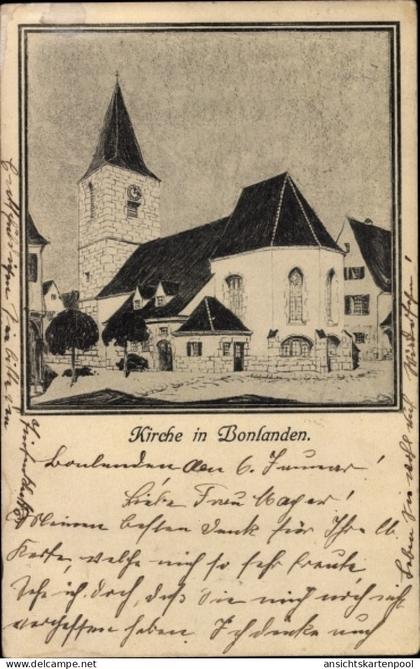 Kirche in Bonlanden.
Bonlanden den 6. Januar
Liebe Frau Mayer!
Meinen besten Dank für Ihre lb.
Karte, welche mich so sehr freute
Sehe ich doch, daß Sie mich noch nicht
vergessen haben. Ich denke auch
Leben Sie wohl
© ansichtskartenpool.com